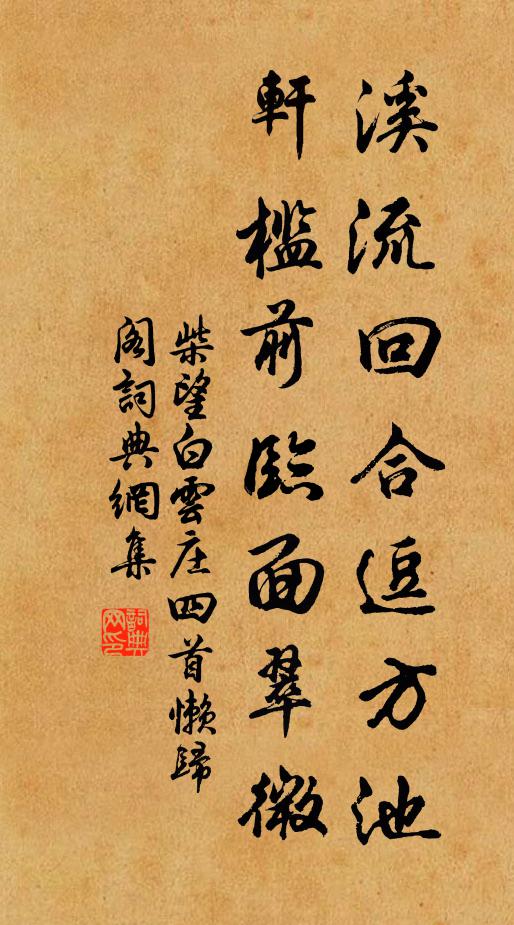 溪流回合逗方池
軒檻前臨面翠微
柴望白雲庄四首懶歸
閣詞典網集
詞典
网印